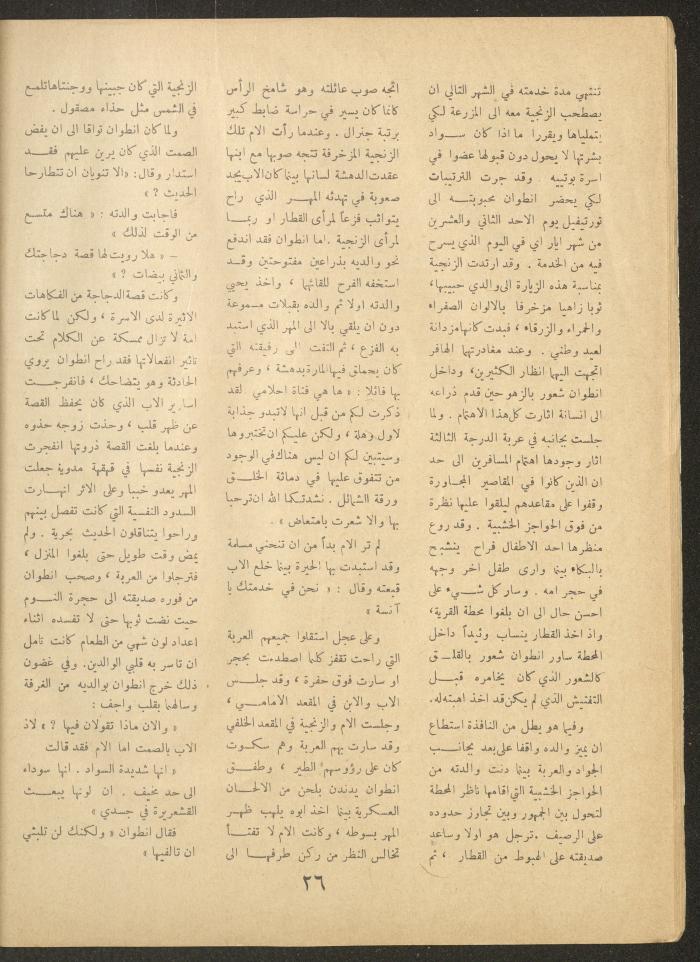 تنتهي مدة خدمته في الشهر التالي ان
يصطحب الزنجية معه الى المزرعة لكي
يتملياها ويقررا ما اذا كان سواد
بشرتها لا يحول دون قبولها عضوا في
اسرة بوتييه . وقد جرت الترتيبات
لكي يحضر انطوان محبوبته الى
تورتيفيل يوم الاحد الثاني والعشرين
من شهر ايار اي في اليوم الذي يسرح
فيه من الخدمة . وقد ارتدت الزنجية
بمناسبة هذه الزيارة الى والدي حبيبها،
ثوبا زاهيا مزخرفا بالالوان الصفراء
والحمراء والزرقاء ، فبدت كانها مزدانة
لعيد وطني . وعند مغادرتهما الهافر
اتجهت اليهما انظار الكثيرين، وداخل
انطوان شعور بالزهو حين قدم ذراعه
الى انسانة اثارت كل هذا الاهتمام . ولما
جلست بجانبه في عربة الدرجة الثالثة
اثار وجودها اهتمام المسافرين الى حد
ان الذين كانوا في المقاصير المجاورة
وقفوا على مقاعدهم ليلقوا عليها نظرة
من فوق الحواجز الخشبية . وقد روع
منظرها احد الاطفال فراح ينشج
بالبكاء بينما وارى طفل اخر وجهه
في حجر امه . وسار كل شيء على
احسن حال الى ان بلغوا محطة القرية،
واذ اخذ القطار ينساب وئيداً داخل
المحطة ساور انطوان شعور بالقلق
كالشعور الذي كان يخامره قبل
التفتيش الذي لم يكن قد اخذ اهبته له.
وفيما هو يطل من النافذة استطاع
ان يميز والده واقفا على بعد بجانب
الجواد والعربة بينما دنت والدته من
الحواجز الخشبية التي اقامها ناظر المحطة
لتحول بين الجمهور وبين تجاوز حدوده
على الرصيف . ترجل هو اولا وساعد
صديقته على الهبوط من القطار ، ثم
اتجه صوب عائلته وهو شامخ الرأس
كانما كان يسير في حراسة ضابط كبير
برتبة جنرال . وعندما رأت الام تلك
الزنجية المزخرفة تتجه صوبها مع ابنها
عقدت الدهشة لسانها بينما كان الاب يجد
صعوبة في تهدئه المهر الذي راح
يتواثب فزعاً لمرأى القطار او ربما
لمرأى الزنجية . اما انطوان فقد اندفع
نحو والديه بذراعين مفتوحتين وقد
استخفه الفرح للقائهما ، واخذ يحيي
والدته اولا ثم والده بقبلات مسموعة
دون ان يلقي بالا الى المهر الذي استبد
به الفزع ، ثم التفت الى رفيقته التي
كان يحملق فيها المارة بدهشة ، وعرفهم
بها قائلا : « ها هي فتاة احلامي . لقد
ذكرت لكم من قبل انها لا تبدو جذابة
لاول وهلة ، ولكن عليكم ان تختبروها
وسيتبين لكم ان ليس هناك في الوجود
من تتفوق عليها في دماثة الخلق
ورقة الشمائل . نشدتكما الله ان ترحبا
بها والا شعرت بامتعاض » .
لم تر الام بداً من ان تنحني مسلمة
وقد استبدت بها الحيرة بينما خلع الاب
قبعته وقال : « نحن في خدمتك يا
آنسة »
وعلى عجل استقلوا جميعهم العربة
التي راحت تقفز كلما اصطدمت بحجر
او سارت فوق حفرة ، وقد جلس
الاب والابن في المقعد الامامي ،
وجلست الام والزنجية في المقعد الخلفي
وقد سارت بهم العربة وهم سكوت
كان على رؤوسهم الطير ، وطفق
انطوان يدندن بلحن من الالحان
العسكرية بينما اخذ ابوه يلهب ظهر
المهر بسوطه ، وكانت الام لا تفتأ
تخالس النظر من ركن طرفها الى
الزنجية التي كان جبينها ووجنتاها تلمع
في الشمس مثل حذاء مصقول .
ولما كان انطوان تواقا الى ان يفض
الصمت الذي كان يرين عليهم فقد
استدار وقال: «الا تنويان ان تتطارحا
الحديث ? »
فاجابت والدته : « هناك متسع
من الوقت لذلك »
– « هلا رويت لها قصة دجاجتك
والثماني بيضات ? »
وكانت قصة الدجاجة من الفكاهات
الاثيرة لدى الاسرة ، ولكن لما كانت
امة لا تزال ممسكة عن الكلام تحت
تاثير انفعالاتها فقد راح انطوان يروي
الحادثة وهو يتضاحك ، فانفرجت
اسارير الاب الذي كان يحفظ القصة
عن ظهر قلب ، وحذت زوجه حذوه
وعندما بلغت القصة ذروتها انفجرت
الزنجية نفسها في قهقهة مدوية جعلت
المهر يعدو خببا وعلى الاثر انهارت
السدود النفسية التي كانت تفصل بينهم
وراحوا يتناقلون الحديث بحرية . ولم
يمض وقت طويل حتى بلغوا المنزل ،
فترجلوا من العربة ، وصحب انطوان
من فوره صديقته الى حجرة النوم
حيث نضت ثوبها حتى لا تفسده اثناء
اعداد لون شهي من الطعام كانت تامل
ان تاسر به قلبي الوالدين. وفي غضون
ذلك خرج انطوان بوالديه من الغرفة
وسالهما بقلب واجف :
« والان ماذا تقولان فيها ? » لاذ
الاب بالصمت اما الام فقد قالت
« انها شديدة السواد . انها سوداء
الى حد مخيف . ان لونها يبعث
القشعريرة في جسدي »
فقال انطوان « ولكنك لن تلبثي
ان تالفيها »
٢٦